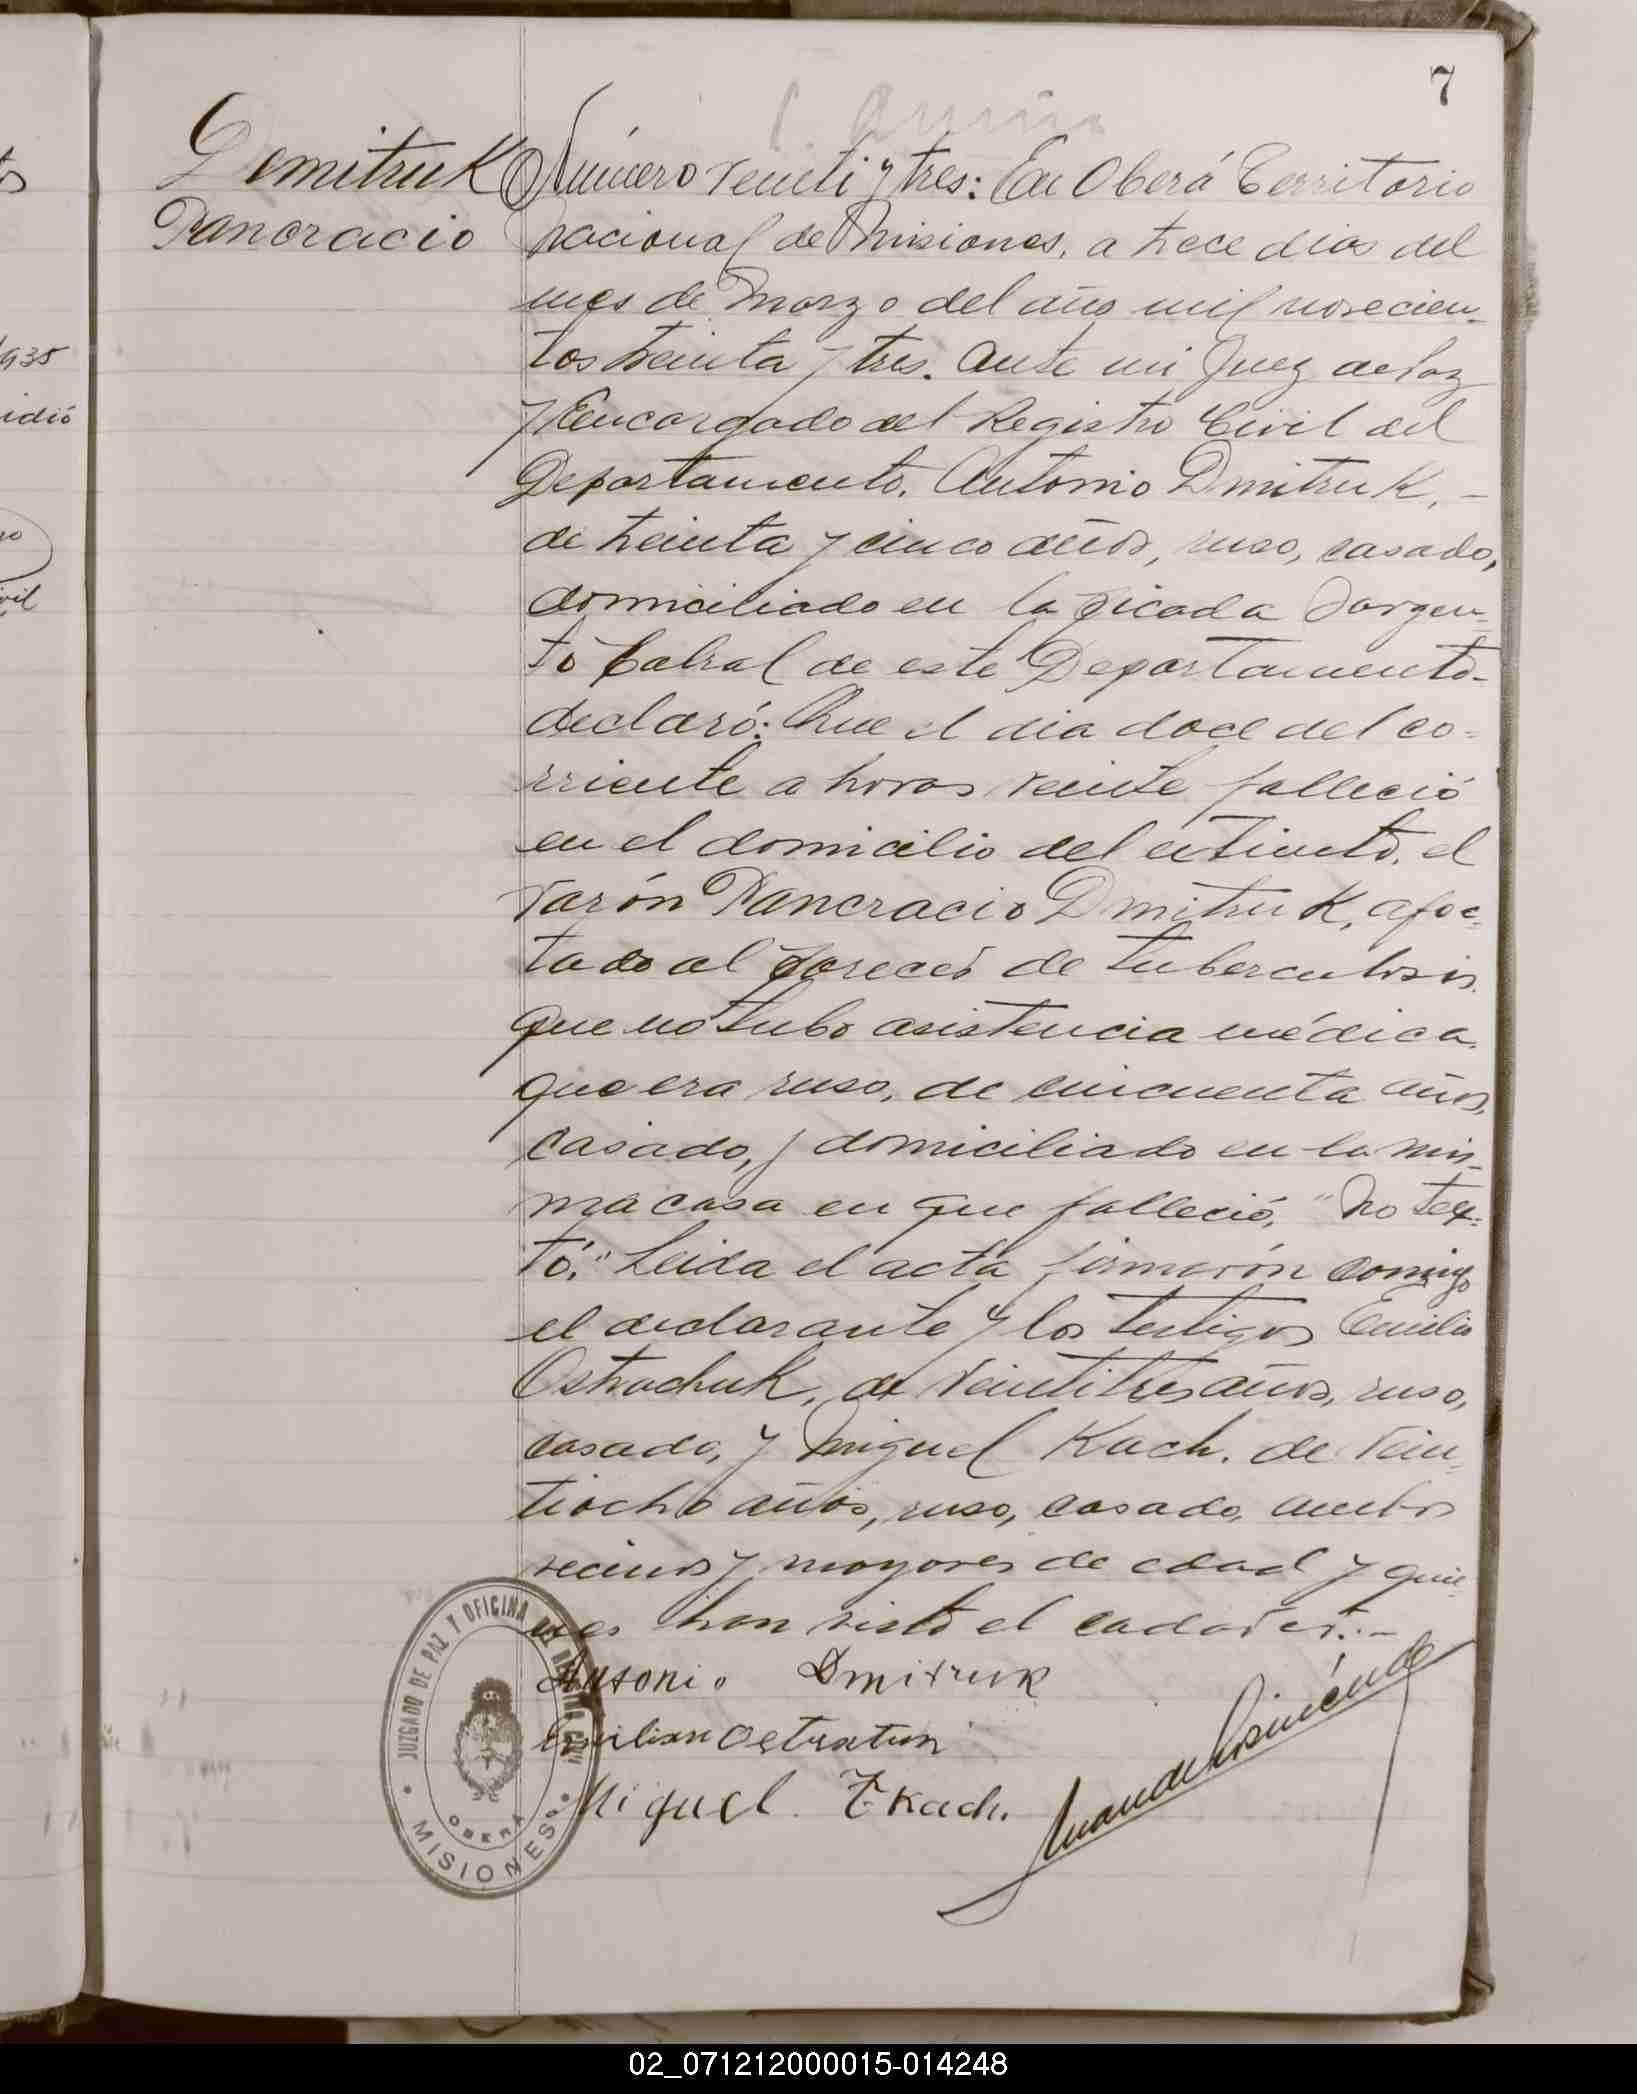 7
Dmitruk
Pancracio
Número veinti y tres: En Oberá Territorio
nacional de Misiones, a trece dias del
mes de Marzo del año mil novecien-
tos treinta y tres. Ante mi Juez de Paz
y Encargado del Registro Civil del
Departamento. Antonio Dmitruk, -
de treinta y cinco años, ruso, casado,
domiciliado en la picada Sargen-
to Cabral de este Departamento-
declaró: Que el dia doce del co-
rriente a horas veinte falleció
en el domicilio del extinto, el
varón Pancracio Dmitruk, afec-
tado al parecer de tuberculosis.
que no tubo asistencia médica.
que era ruso, de cincuenta años,
casado, y domiciliado en la mis-
ma casa en que falleció, "No tex-
tó." Leida el acta firmarón comigo
el declarante y los testigos Emilio
Ostrachuk, de veintitres años, ruso,
casado, y Miguel Kach. de vein-
tiocho años, ruso, casado, ambos
vecinos y mayores de edad y quie-
nes han visto el cadaver.-
Antonio Dmitruk
Miguel Tkach.
JUZGADO DE PAZ Y OFICINA DEL REGISTRO CIVIL
OBERA
MISIONES
1935
idió
vil
02_071212000015-014248